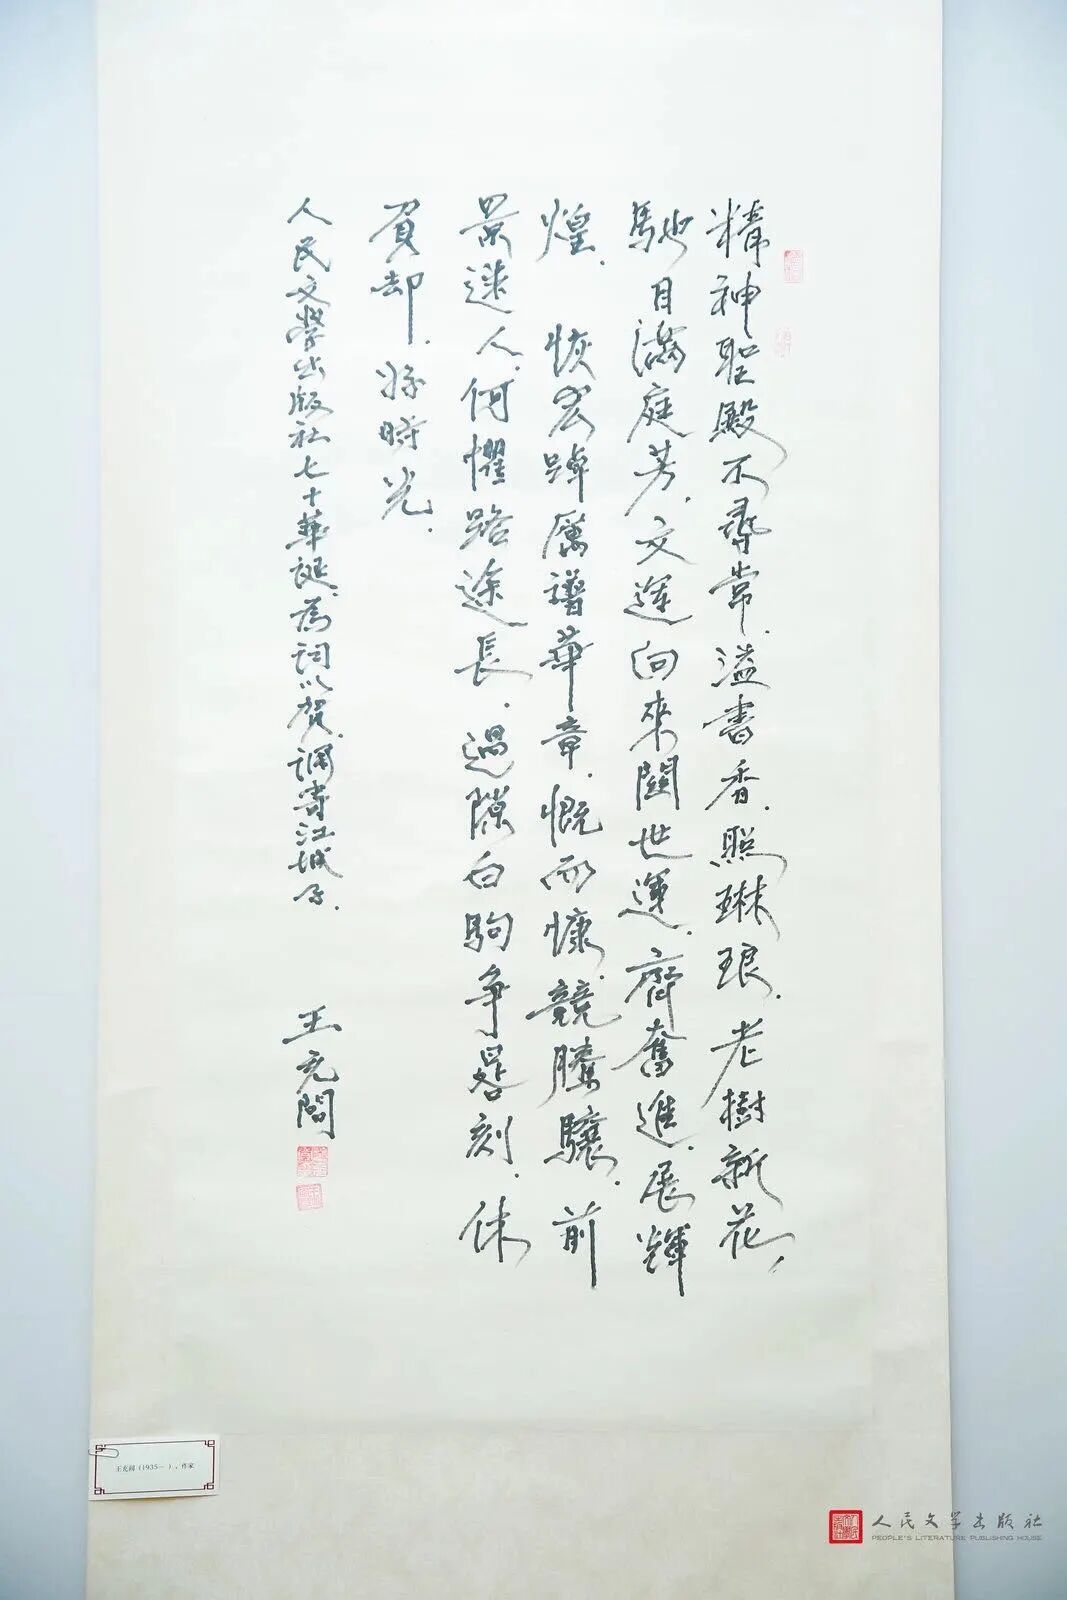 精神聖殿不尋常.溢書香.照琳琅.老樹新花,
馳目滿庭芳.文運向來關世運.齊奮進.展輝
煌.恢宏踔厲譜華章.慨而慷.競騰驤.前
景迷人.何懼路途長.過隙白駒争晷刻.休
負却.好時光.
人民文學出版社七十華誕.為詞以賀.調寄江城子.
王充閭
王充闾（1935— ），作家
人民文学出版社
PEOPLE'S LITERATURE PUBLISHING HOUSE